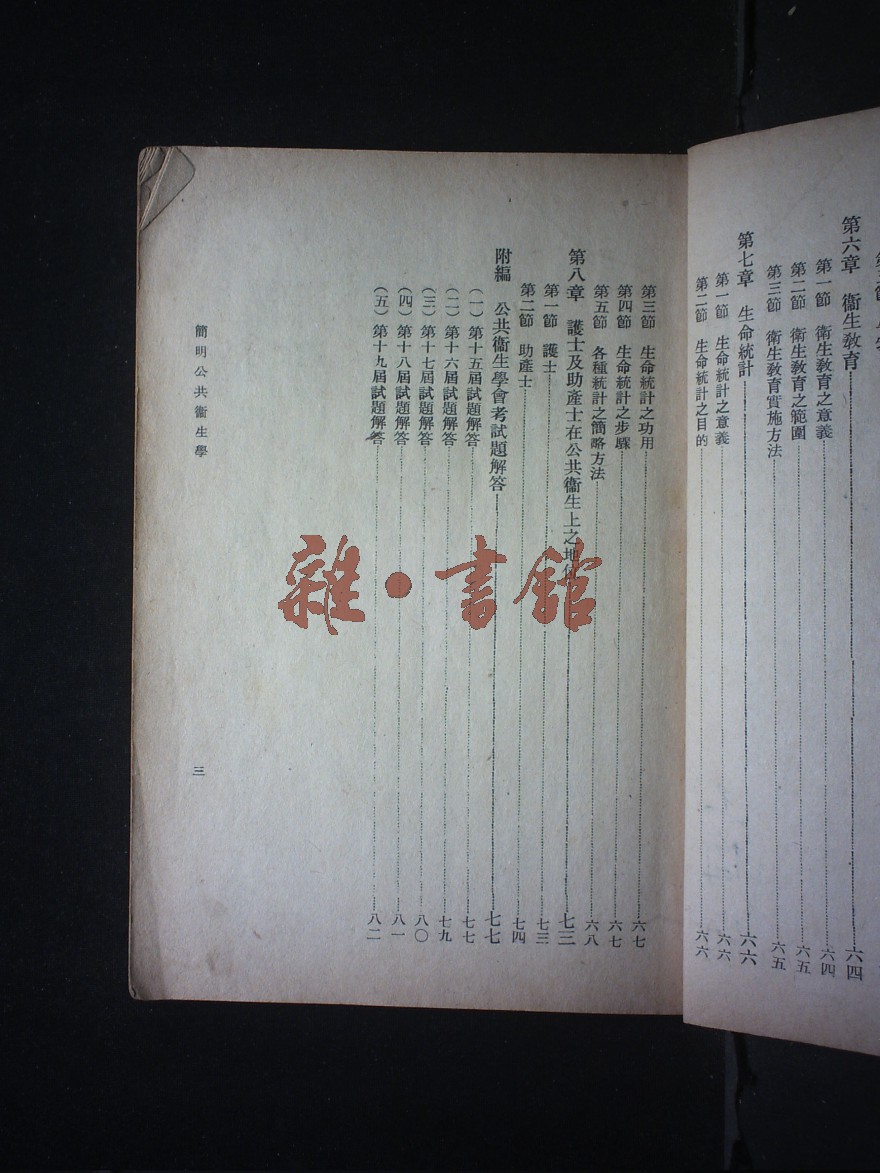 第六章　衞生教育 六四
第一節　衞生教育之意義 六四
第二節　衞生教育之範圍 六五
第三節　衞生教育實施方法 六五
第七章　生命統計 六六
第一節　生命統計之意義 六六
第二節　生命統計之目的 六六
第三節　生命統計之功用 六七
第四節　生命統計之步驟 六七
第五節　各種統計之簡略方法 六八
第八章　護士及助產士在公共衞生上之地位 七三
第一節　護士 七三
第二節　助產士 七四
附編　公共衞生學會考試題解答 七七
（一）第十五屆試題解答 七七
（二）第十六屆試題解答 七九
（三）第十七屆試題解答 八〇
（四）第十八屆試題解答 八一
（五）第十九屆試題解答 八二
簡明公共衞生學
三
雜·書館